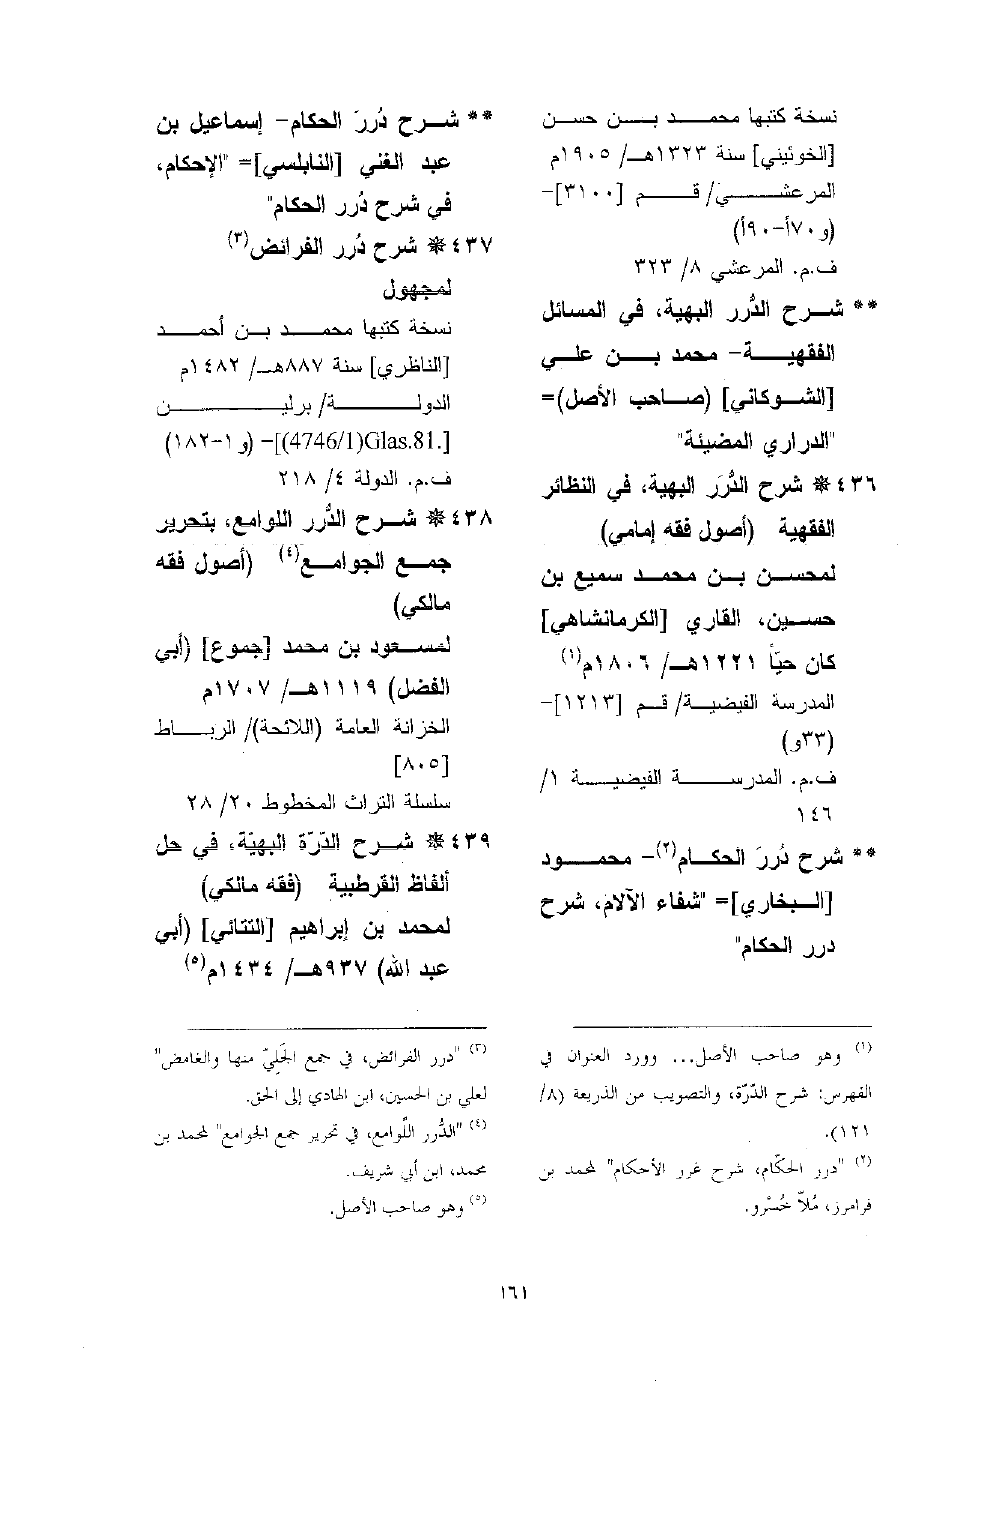 نسخة كتبها محمد بن حسن
[الخوئيني] سنة ١٣٢٣هـ/ ١٩٠٥م
المرعشي/ قم [٣١٠٠]-
(و٧٠أ-٩٠أ)
ف.م. المرعشي ٨/ ٣٢٣
** شرح الدُّرر البهية، في المسائل
الفقهية- محمد بن علي
[الشوكاني] (صاحب الأصل)=
"الدراري المضيئة"
٤٣٦* شرح الدُّرَر البهية، في النظائر
الفقهية (أصول فقه إمامي)
لمحسن بن محمد سميع بن
حسين، القاري [الكرمانشاهي]
كان حيّاً ١٢٢١هـ/ ١٨٠٦م(١)
المدرسة الفيضية/ قم [١٢١٣]-
(٣٣و)
ف.م. المدرسة الفيضية ١/
١٤٦
** شرح دُررَ الحكام(٢)- محمود
[البخاري]= "شفاء الآلام، شرح
درر الحكام"
(١) وهو صاحب الأصل... وورد العنوان في
الفهرس: شرح الدّرّة، والتصويب من الذريعة (٨/
١٢١).
(٢) "درر الحكّام، شرح غرر الأحكام" لمحمد بن
فرامرز، مُلاّ خُسْرو.
** شرح دُررَ الحكام- إسماعيل بن
عبد الغني [النابلسي]= "الإحكام،
في شرح دُرر الحكام"
٤٣٧* شرح دُرر الفرائض(٣)
لمجهول
نسخة كتبها محمد بن أحمد
[الناظري] سنة ٨٨٧هـ/ ١٤٨٢م
الدولة/ برلين
[.Glas.81(4746/1)]- (و١-١٨٢)
ف.م. الدولة ٤/ ٢١٨
٤٣٨* شرح الدُّرر اللوامع، بتحرير
جمع الجوامع(٤) (أصول فقه
مالكي)
لمسعود بن محمد [جموع] (أبي
الفضل) ١١١٩هـ/ ١٧٠٧م
الخزانة العامة (اللائحة)/ الرباط
[٨٠٥]
سلسلة التراث المخطوط ٢٠/ ٢٨
٤٣٩* شرح الدّرّة البهيّة، في حل
ألفاظ القرطبية (فقه مالكي)
لمحمد بن إبراهيم [التتائي] (أبي
عبد الله) ٩٣٧هـ/ ١٤٣٤م(٥)
(٣) "درر الفرائض، في جمع الجَلِيّ منها والغامض"
لعلي بن الحسين، ابن الهادي إلى الحق.
(٤) "الدُّرر اللّوامع، في تحرير جمع الجوامع" لمحمد بن
محمد، ابن أبي شريف.
(٥) وهو صاحب الأصل.
١٦١